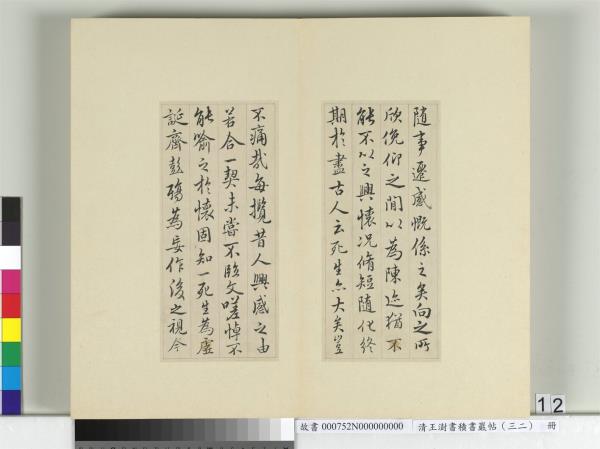 隨事遷感慨係之矣向之所
欣俛仰之間以為陳迹猶不
能不以之興懷況脩短隨化終
期於盡古人云死生亦大矣豈
不痛哉每攬昔人興感之由
若合一契未嘗不臨文嗟悼不
能喻之於懷固知一死生為虛
誕齊彭殤為妄作後之視今
12
故書 000752N000000000 清王澍書積書巖帖(三二) 冊